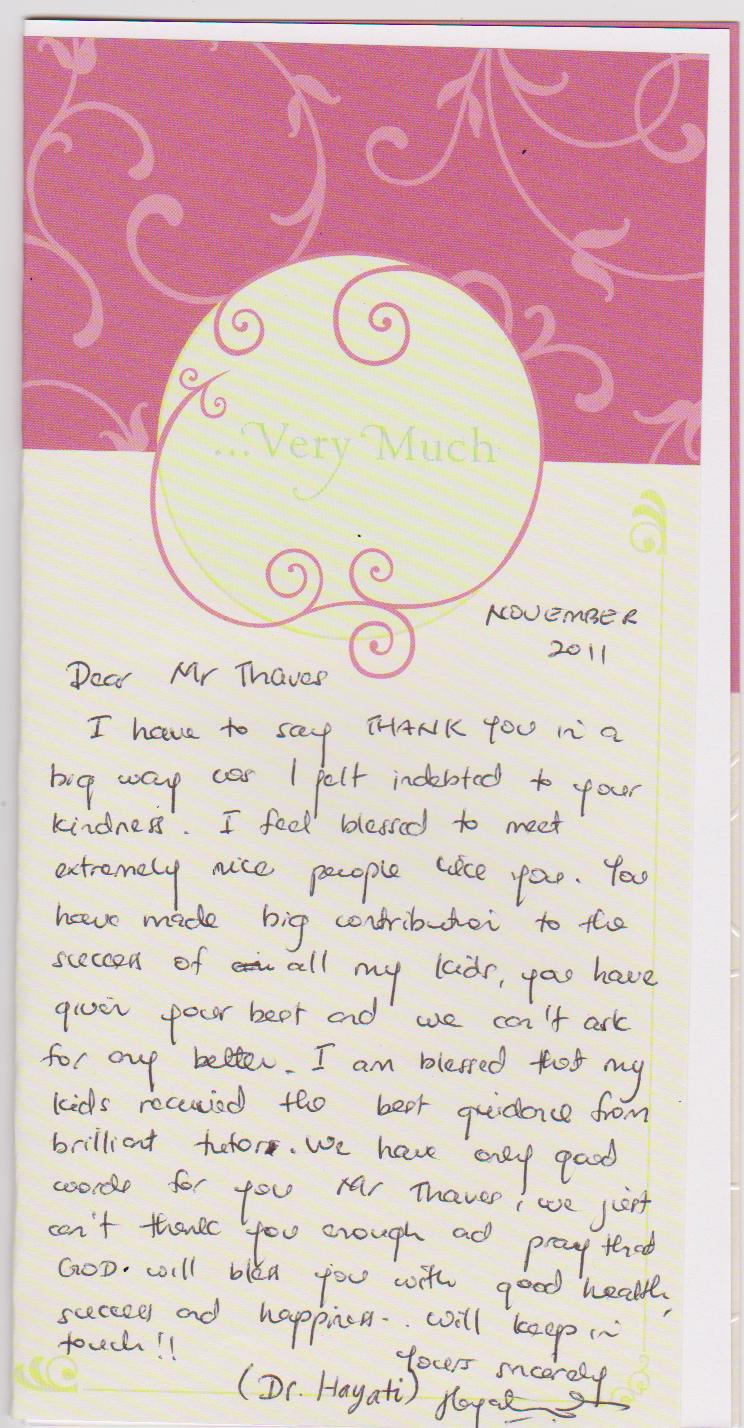 ...Very Much
NOVEMBER
2011
Dear Mr Thaves
I have to say THANK YOU in a
big way cos I felt indebted to your
kindness. I feel blessed to meet
extremely nice people like you. You
have made big contribution to the
success of all my kids, you have
given your best and we can't ask
for any better. I am blessed that my
kids received the best guidance from
brilliant tutors. We have only good
words for you Mr Thaves, we just
can't thank you enough ad pray that
GOD. will bless you with good health,
success and happiness.. will keep in
touch!!
Yours sincerely
(Dr. Hayati) Hayati